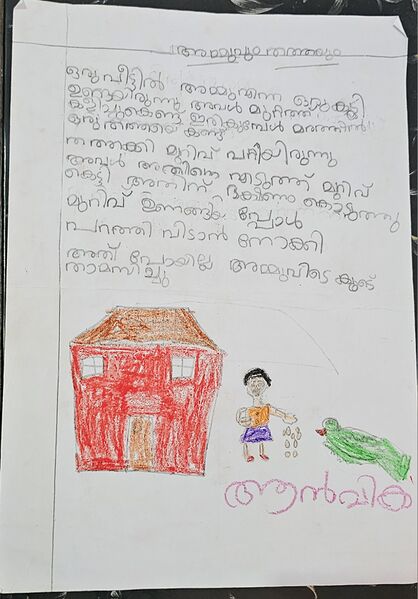 അമ്മുവും തത്തയും
ഒരു വീട്ടിൽ അമ്മുയെന്ന ഒരു കുട്ടി
ഉണ്ടായിരുന്നു അവൾ മുറ്റത്ത്
കളിച്ചുകൊണ്ട് ഇരിക്കുമ്പേൾ മരത്തിൽ
ഒരു തത്തയെ കണ്ടു
തത്തക്കി മുറിവ് പറ്റിയിരുന്നു
അവൾ അതിനെ എടുത്ത് മുറിവ്
കെട്ടി അതിന് കൊടുത്തു
മുറിവ് ഉണങ്ങിയ പ്പോൾ
പറത്തി വിടാൻ നോക്കി
അത് പോയില്ല അമ്മുവിടെ കൂടെ
താമസിച്ചു
ആൻവിക